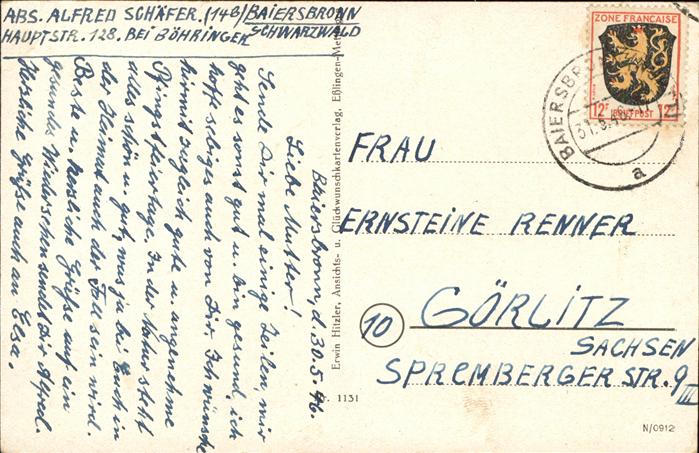 ABS. ALFRED SCHÄFER. (14B) BAIERSBRONN
HAUPTSTR. 128. BEI BÖHRINGER SCHWARZWALD
Baiersbronn, d. 30.5.46.
Liebe Mutter!
Sende Dir mal einige Zeilen mir
geht es sonst gut u. bin gesund, ich
hoffe selbiges auch von Dir. Ich wünsche
hiermit zugleich gute u. angenehme
Pfingstfeiertage. In der Natur steht
alles schön u. gut, was ja bei Euch in
der Heimat auch der Fall sein wird.
Beste u. herzliche Grüße auf ein
gesundes Wiedersehen sendet Dir
Herzliche Grüße auch an Elsa.
Erwin Hitzler, Ansichts- u. Glückwunschkartenverlag, Eßlingen-
1131
ZONE FRANÇAISE
12 F BRIEFPOST 12
BAIERSBRONN
31.5.46
a
FRAU
ERNSTEINE RENNER
10 GÖRLITZ
SACHSEN
SPREMBERGER STR. 9 III
N/0912